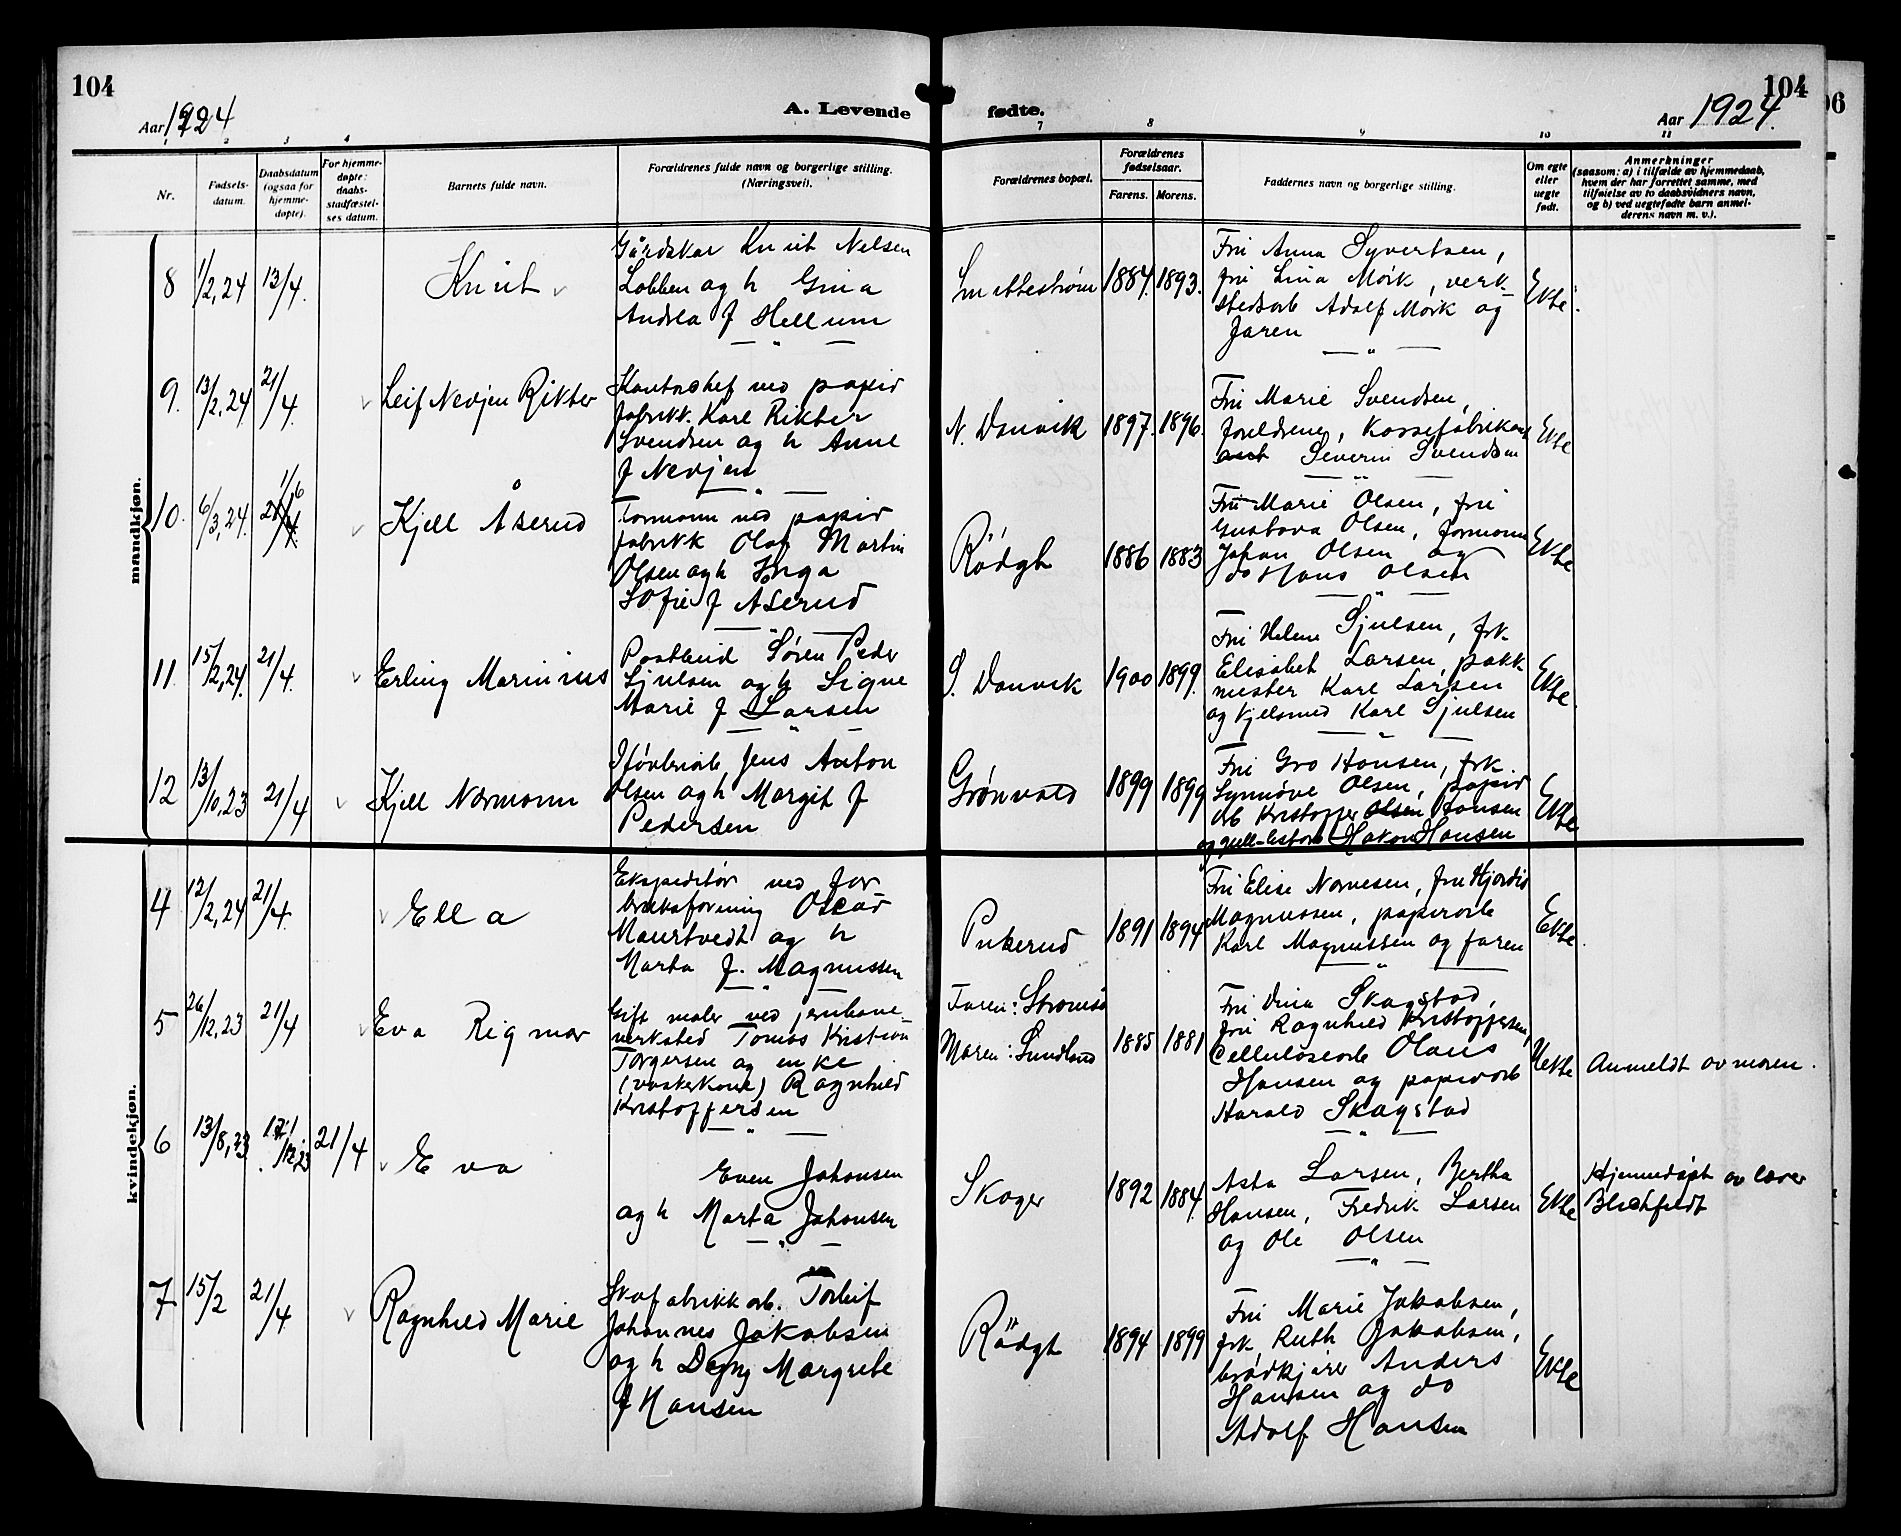 104
Aar 1924
A. Levende
fødte.
Aar 1924.
104
06
1 2 3 4 7 8 9 10 11
Nr.
Fødsels-
datum.
Daabsdatum
(ogsaa for
hjemme-
døpte).
For hjemme-
døpte:
daabs-
stadfæstel-
ses datum.
Barnets fulde navn.
Forældrenes fulde navn og borgerlige stilling.
(Næringsvei).
Forældrenes bopæl.
Forældrenes
fødselsaar.
Farens. Morens.
Faddernes navn og borgerlige stilling.
Om egte
eller
uegte
født.
Anmerkninger
(saasom: a) i tilfælde av hjemmedaab,
hvem der har forrettet samme, med
tilføielse av to daabsvidners navn,
og b) ved uegtefødte barn anmel-
derens navn m. v.).
mandkjøn.
8
1/2, 24
13/4.
Knut
Gårdskar Knut Nelsen
Lobben og h Gina
Andrea f Hellum
Smettestrøm
1884. 1893.
Fru Anna Syvertsen,
fru Lina Mørk, verk
stedsarb Adolf Mørk og
faren
Ekte.
9.
13/2, 24.
21/4.
Leif Nevjen Rikter
Kontorchef ved papir
fabrikk. Karl Rikter
Svendsen og h Anne
f Nevjen
N. Danvik
1897. 1896.
Fru Marie Svendsen,
foreldrene, Korsefabrikant
Severin Svendsen
Ekte
10.
6/3, 24.
1/6
21/4.
Kjell Åserud
Formann ved papir
fabrikk Olaf Martin
Olsen og h Inga
Sofie f Åserud
Rødgt
1886 1883
Fru Marie Olsen, fru
Gustava Olsen, formann
Johan Olsen og
do Hans Olsen
Ekte
11.
15/2, 24.
21/4.
Erling Marinius
Postbud Søren Peder
Sjulsen og h Signe
Marie f Larsen
S. Danvik
1900 1899.
Fru Helene Sjulsen, frk
Elisabet Larsen, pakk
mester Karl Larsen
og kjelsmed Karl Sjulsen
Ekte.
12
13/10, 23
21/4
Kjell Normann
Jens Anton
Olsen og h Margit f
Pedersen
Grønvold
1899 1899
Fru Gro Hansen, frk
Synnøve Olsen, papir
arb Kristoffer Olsen Hansen
og Hakon Hansen
Ekte
kvindekjøn.
4
12/2, 24
21/4.
Ella
Ekspeditør ved for
bruksforening Oscar
Maurtvedt og h
Marta f. Magnussen
Pukerud
1891 1894
Fru Elise Narvesen, fru Hjørdis
Magnussen, papirarb
Karl Magnussen og faren
Ekte.
5
26/12, 23
21/4
Eva Rigmor
Gift maler ved jernbane-
verksted Tomas Kristian
Torgersen og enke
(vaskekone) Ragnhild
Kristoffersen
Faren: Strømsø
Moren: Sundland
1885 1881
Fru Dina Skagstad,
fru Ragnhild Kristoffersen,
Celluloscarb Olaus
Hansen og papirarb
Harald Skagstad
Uekte
Anmeldt av moren.
6
13/8, 23
17/12 23
21/4
Eva
Even Johansen
og h Marta Johansen
Skoger
1892 1884.
Asta Larsen, Bertha
Hansen, Fredrik Larsen
og Ole Olsen
Ekte
Hjemmedøpt av lærer
Blichfeldt
7
15/2
21/4
Ragnhild Marie
Skofabrikkarb. Torleif
Johannes Jakobsen
og h Dagny Margrete
f Hansen
Rødgt
1894 1899
Fru Marie Jakobsen,
frk Ruth Jakobsen,
brødkjører Anders
Hansen og do
Adolf Hansen
Ekte